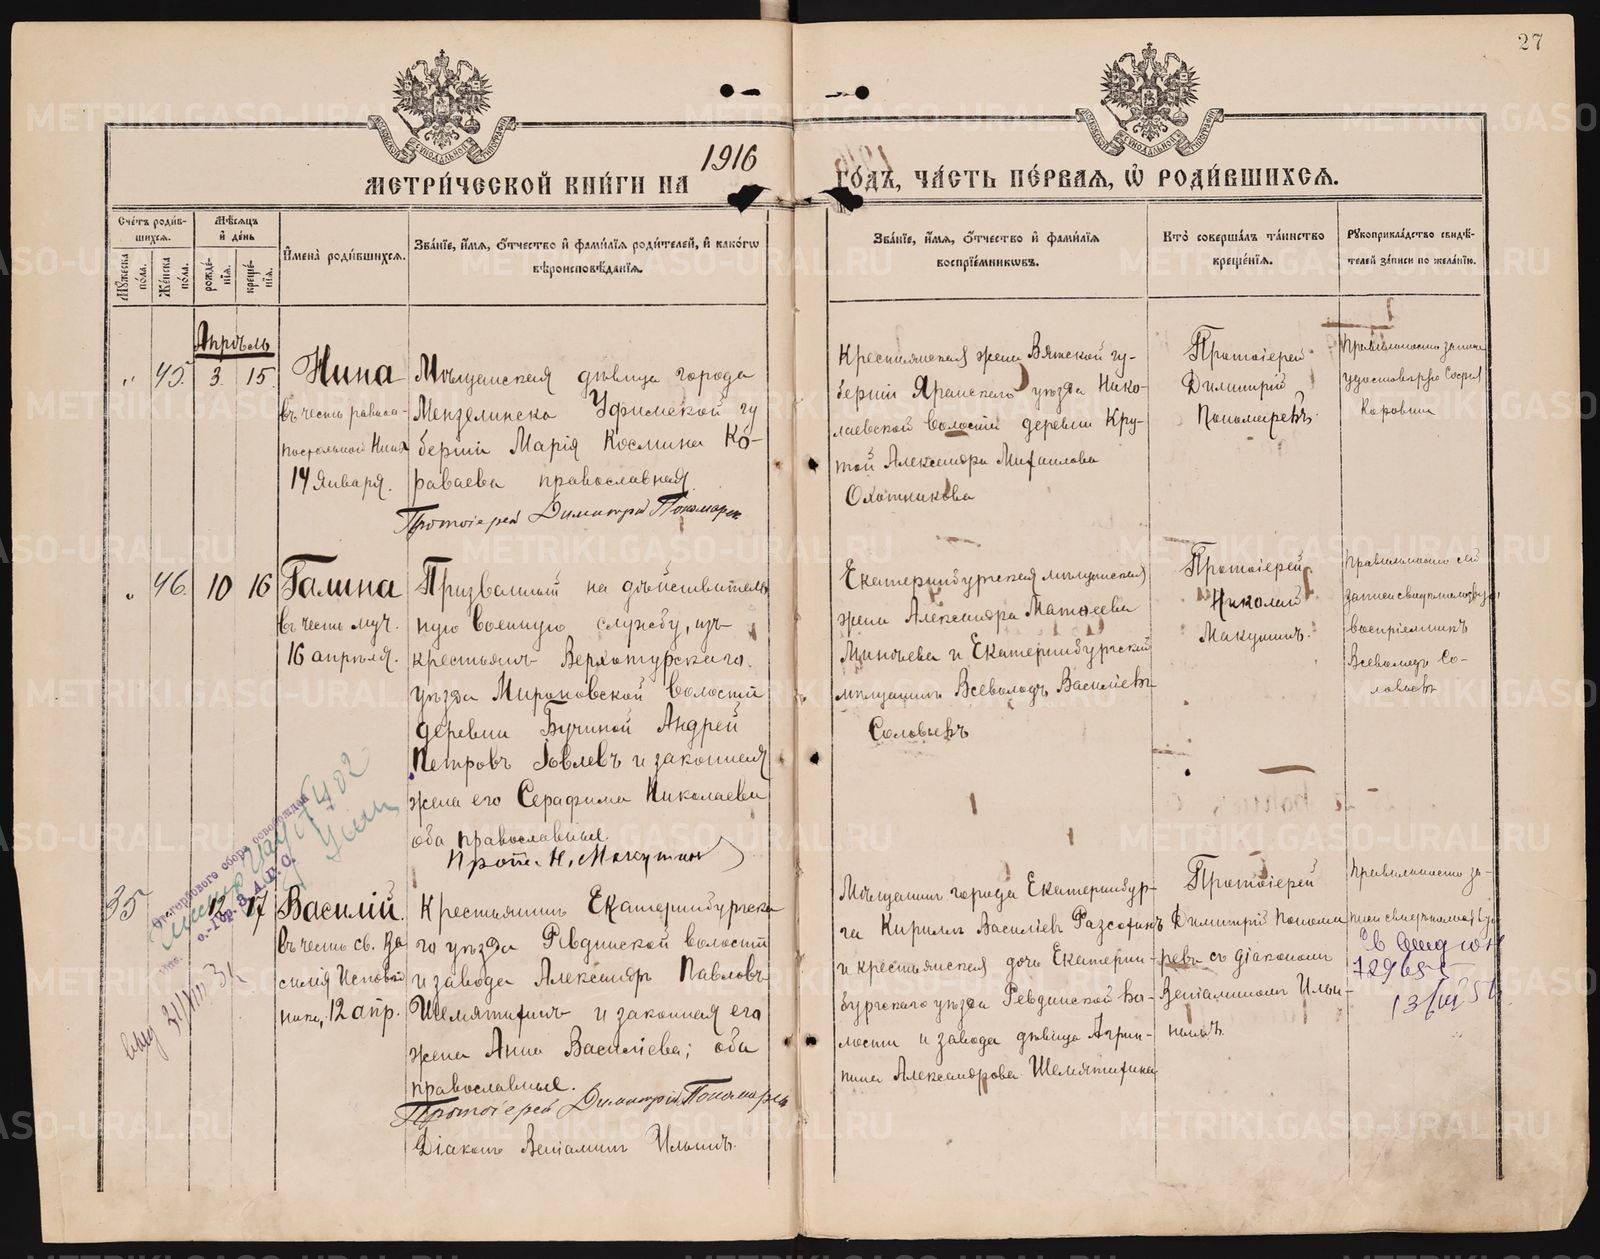 27
1916
МЕТРИ́ЧЕСКОЙ КНИ́ГИ НА
ГО́ДЪ, ЧА́СТЬ ПЕ́РВАЯ, Ѡ҆ РОДИ́ВШИХСЯ.
Сче́тъ роди́в-
шихся.
Мѣ́сяцъ
и҆ де́нь
Мꙋ́жеска
по́ла.
Же́нска
по́ла.
рожде́-
нїя.
креще́-
нїя.
И҆мена̀ роди́вшихся.
Зва́нїе, и҆́мя, ѻ҆́тчество и҆ фами́лїя роди́телей, и҆ како́гѡ
вѣроисповѣ́данїя.
Зва́нїе, и҆́мя, ѻ҆́тчество и҆ фами́лїя
воспрїе́мникѡвъ.
Кто̀ соверша́лъ та́инство
креще́нїя.
Рꙋкоприкла́дство свидѣ́-
телей за́писи по жела́нїю.
Апрѣль
" 45. 3 15
Нина
въ честь равноа-
постольной Нины
14 Января.
Мѣщанская дѣвица города
Мензелинска Уфимской гу
берніи Марія Космина Ко-
раваева православная
Протоіерей Димитрій Пономарев
Крестьянская жена Вятской гу-
берніи Яранскаго уѣзда Нико-
лаевской волости деревни Кру-
той Александра Михаилова
Охотникова
Протоіерей
Димитрій
Пономаревъ.
Правильность записи
удостовѣряю София
" 46. 10 16
Галина
въ честь муч.
16 апрѣля.
Призванный на дѣйствитель
ную военную службу, изъ
крестьянъ Верхотурскаго
уѣзда Мироновской волости
деревни Бучиной Андрей
Петровъ Іовлевъ и законная
жена его Серафима Николаева
оба православные.
Прот. Н. Макушин
Екатеринбургская мѣщанская
жена Александра Матѳеева
Минѣева и Екатеринбургский
мѣщанинъ Всеволодъ Василіевъ
Соловьевъ
Протоіерей
Николай
Макушинъ.
Правильность сей
записи свидѣтельствую,
воспріемникъ
Всеволодъ Со-
ловьевъ
35 12 17
Василій.
въ честь св. Ва
силія Исповѣд
ника, 12 апр.
Крестьянинъ Екатеринбургска
го уѣзда Ревдинской волости
и завода Александръ Павловъ
Шемятихинъ и законная его
жена Анна Василіева; оба
православные.
Протоіерей Димитрій Пономаревъ
Діаконъ Веніаминъ Ильинъ.
Мѣщанинъ города Екатеринбур-
га Кириллъ Василіевъ Разсохинъ
и крестьянская дочь Екатерин-
бургскаго уѣзда Ревдинской во-
лости и завода дѣвица Агрип-
пина Александрова Шемятихина
Протоіерей
Димитрій Понома
ревъ съ діакономъ
Веніаминомъ Ильи-
нымъ.
Правильность за-
писи свидѣтельствую
От гербового сбора освобожден